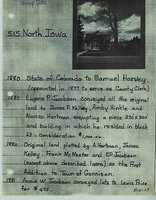 515 North Iowa
1880 State of Colorado to Samuel Harsley
(appointed in 1877 to serve as County Clerk)
1880 Eugene P. Jacobson conveyed all the original
land to James P. Kelley, Amby Hinkle and
Alonzo Hartman excepting a piece 250 x 300
and building in which he resided in block
consideration $1,000.00
1880 Original land platted by A. Hartman, James
Kelley, Frank McMaster and E.P. Jacobson
(most above described land) as the First
Addition to Town of Gunnison.
1881 Annie W. Jacobson conveys lots to Lewis Price
for $475.